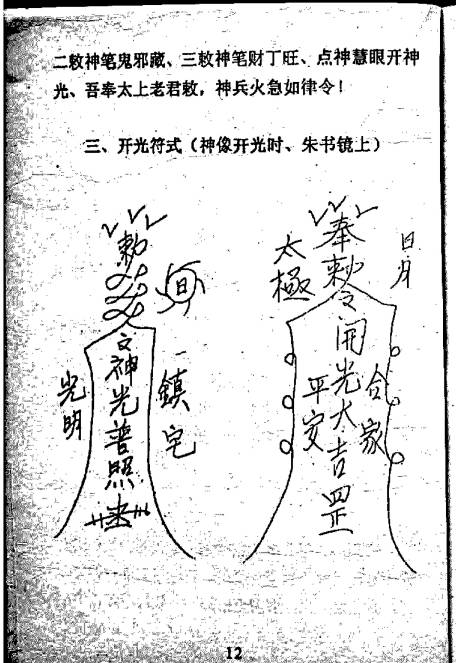 二敕神笔鬼邪藏、三敕神笔财丁旺、点神慧眼开神
光、吾奉太上老君敕，神兵火急如律令！
三、开光符式（神像开光时、朱书镜上）
敕
神光普照
光明
鎮宅
奉敕令開光大吉罡
太極
日月
平安
合家
12